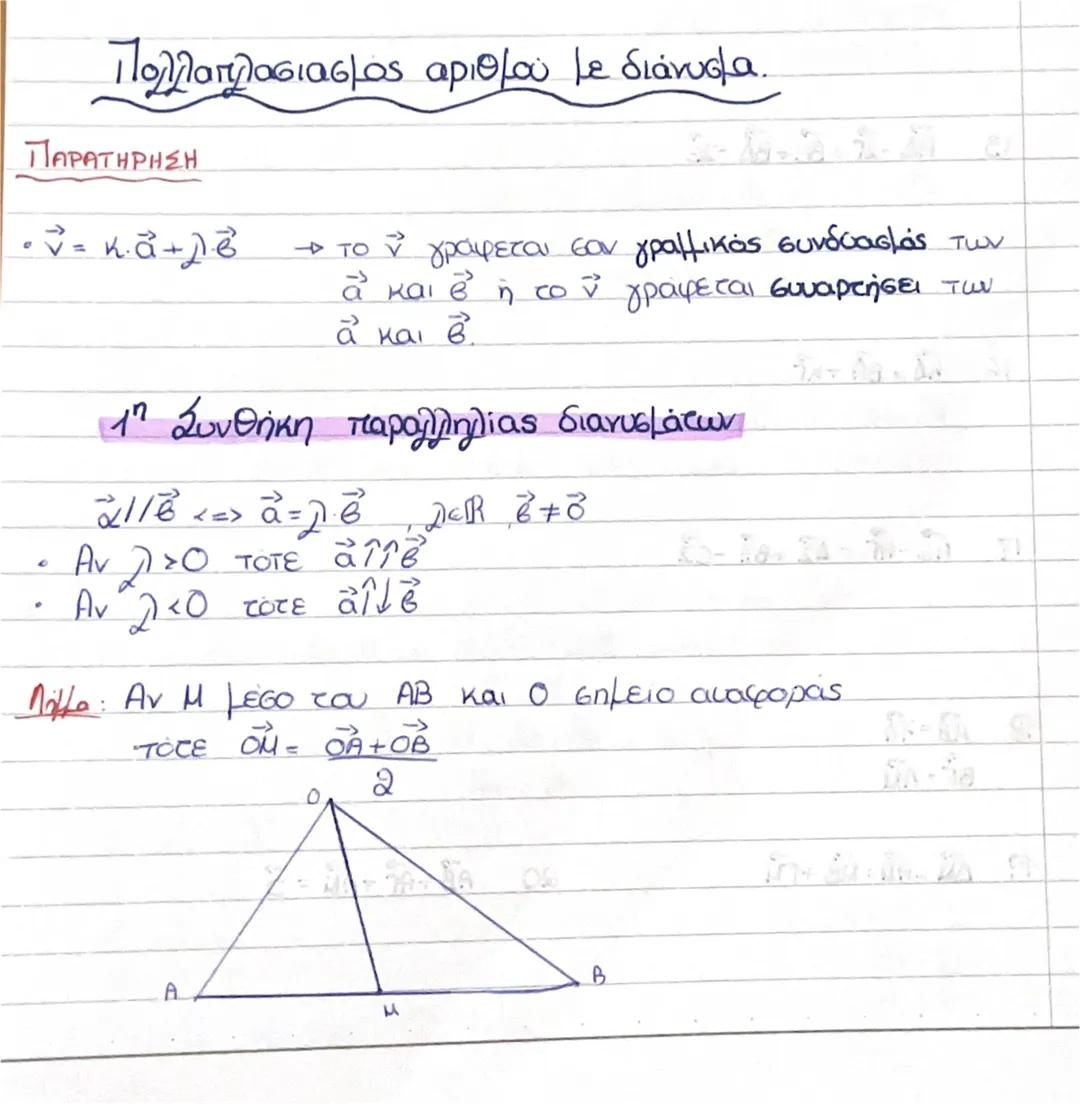 Πολλαπλασιασμός αριθμού με διάνυσμα.
ΠΑΡΑΤΗΡΗΣΗ
• v⃗ = κ·α⃗ + λ·β⃗ → το v⃗ γράφεται σαν γραμμικός συνδυασμός των
α⃗ και β⃗ ή το v⃗ γράφεται συναρτήσει των
α⃗ και β⃗.
1η Συνθήκη παραλληλίας διανυσμάτων
α⃗//β⃗ <=> α⃗ = λ·β⃗ , λ∈ℝ, β⃗ ≠ 0⃗
• Αν λ>0 τότε α⃗↑↑β⃗
• Αν λ<0 τότε α⃗↑↓β⃗
Λήμμα: Αν Μ μέσο του ΑΒ και Ο σημείο αναφοράς
τότε ΟΜ⃗ = ΟΑ⃗ + ΟΒ⃗
2
Ο
Α
Β
Μ